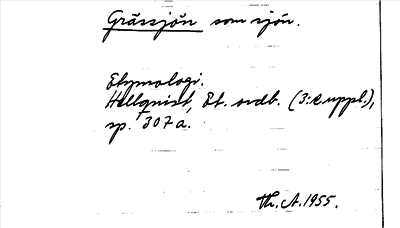 Grässjön som sjön.
Etymologi.
Hellquist, Et. ordb. (3:e uppl.),
sp. 307 a.
Th. A. 1955.